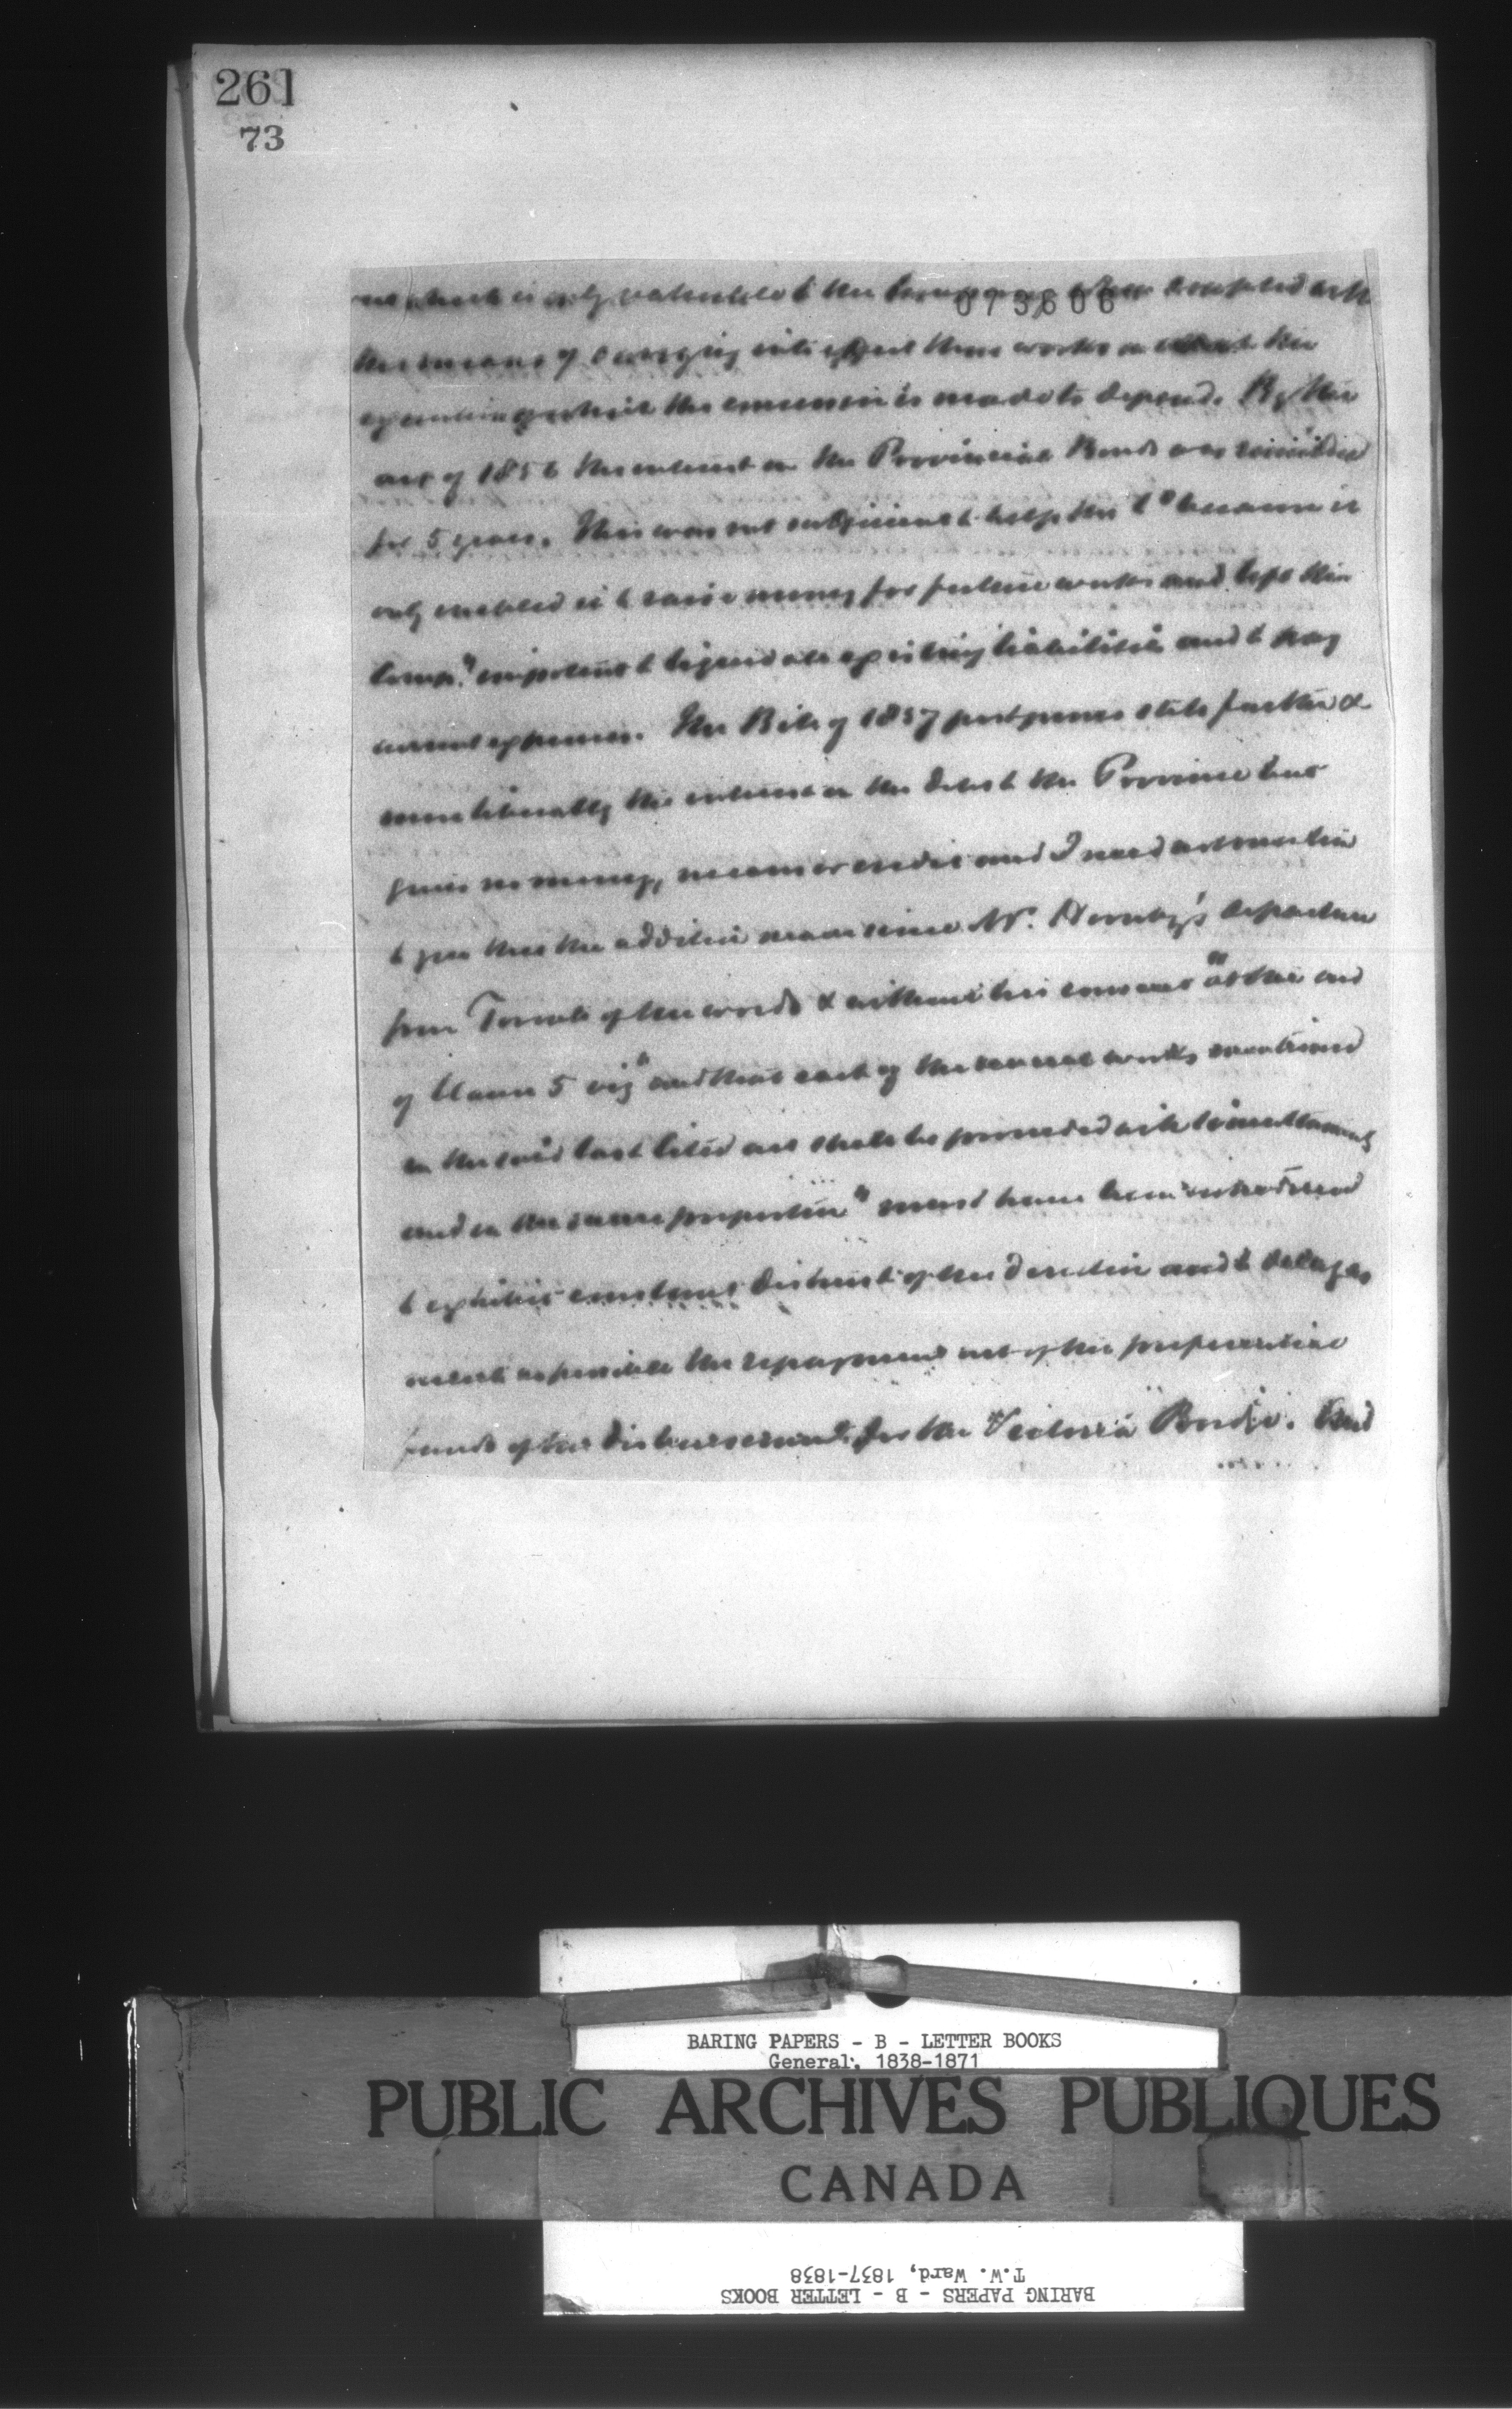 261
73
073606
which is only valuable to the Company when coupled with
the means of carrying into effect these works on which the
execution of which the concession is made to depend. By the
act of 1856 the interest on the Provincial Bonds was remitted
for 5 years. This was not sufficient to help the Co because it
only enabled it to raise money for future works and left the
Comp.y impotent to liquidate existing liabilities and to pay
current expenses. The Bill of 1857 postpones still further &
more liberally the interest on the debt to the Province but
gives no money, means or credit and I need not mention
to you that the addition made since Mr. Hornby's departure
from Toronto of the words & without his consent at the end
of Clause 5 viz "and that each of the several works mentioned
in the said last cited act shall be proceeded with simultaneously
and in the same proportion" must have been introduced
to exhibit constant distrust of the direction and to delay as
as possible the repayment out of the preferential
funds of the disbursements for the Victoria Bridge. And
BARING PAPERS - B - LETTER BOOKS
General, 1838-1871
PUBLIC ARCHIVES PUBLIQUES
CANADA
T.W. Ward, 1837-1838
BARING PAPERS - B - LETTER BOOKS